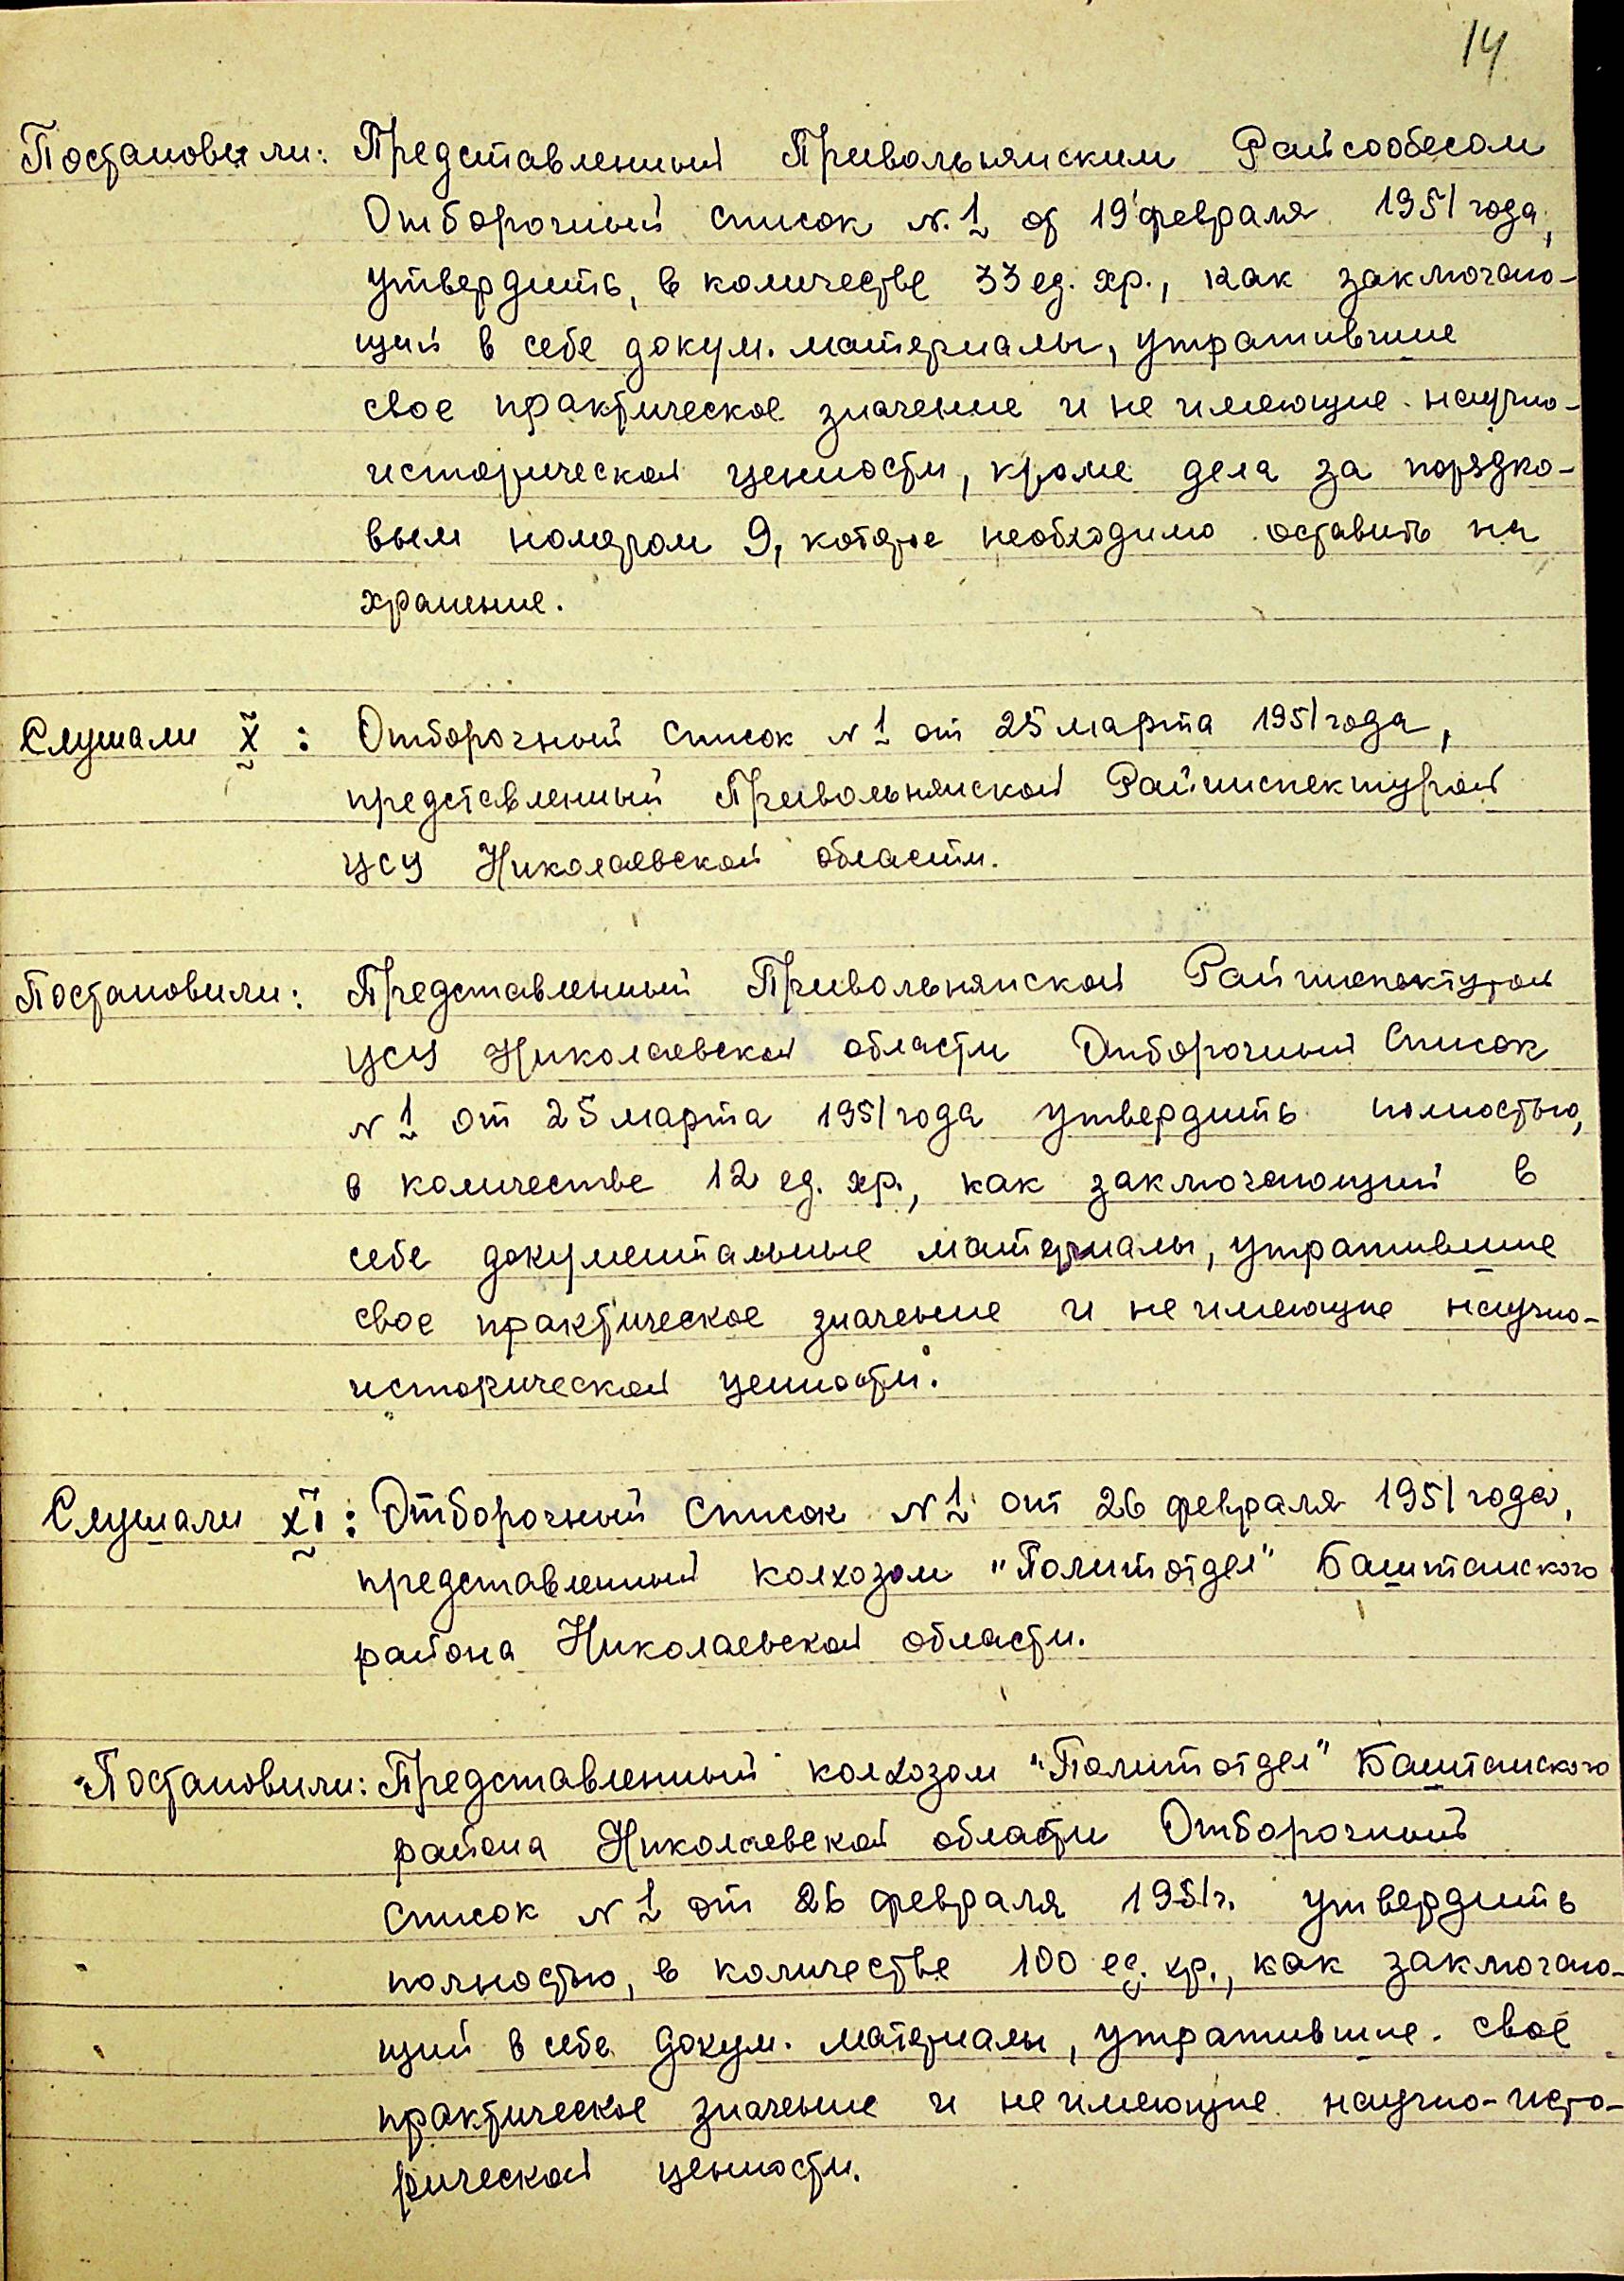 14
Постановили: Представленный Привольнянским Райсообесом
Отборочный список N.1 от 19 февраля 1951 года,
утвердить, в количестве 33 ед. хр., как заключаю-
щий в себе докум. материалы, утратившие
свое практическое значение и не имеющие научно-
исторической ценности, кроме дела за порядко-
вым номером 9, которое необходимо оставить на
хранение.
Слушали X : Отборочный список N 1 от 25 марта 1951 года,
представленный Привольнянской Райинспектурой
ЦСУ Николаевской области.
Постановили: Представленный Привольнянской Райинспектурой
ЦСУ Николаевской области Отборочный список
N 1 от 25 марта 1951 года утвердить полностью,
в количестве 12 ед. хр., как заключающий в
себе документальные материалы, утратившие
свое практическое значение и не имеющие научно-
исторической ценности.
Слушали XI : Отборочный список N 1 от 26 февраля 1951 года,
представленный колхозом "Политотдел" Баштанского
района Николаевской области.
Постановили: Представленный колхозом "Политотдел" Баштанского
района Николаевской области Отборочный
список N 1 от 26 февраля 1951 г. утвердить
полностью, в количестве 100 ед. хр., как заключаю-
щий в себе докум. материалы, утратившие свое
практическое значение и не имеющие научно-исто-
рической ценности.